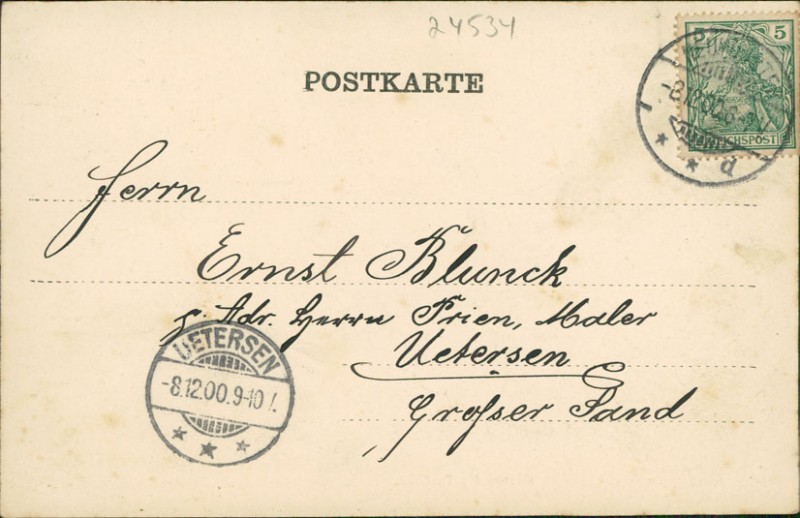 24534
POSTKARTE
5
REICHSPOST
-8.12.00.
d
Herrn
Ernst Blunck
p. Adr. Herrn Frien, Maler
Uetersen
Großer Sand
UETERSEN
-8.12.00.9-10